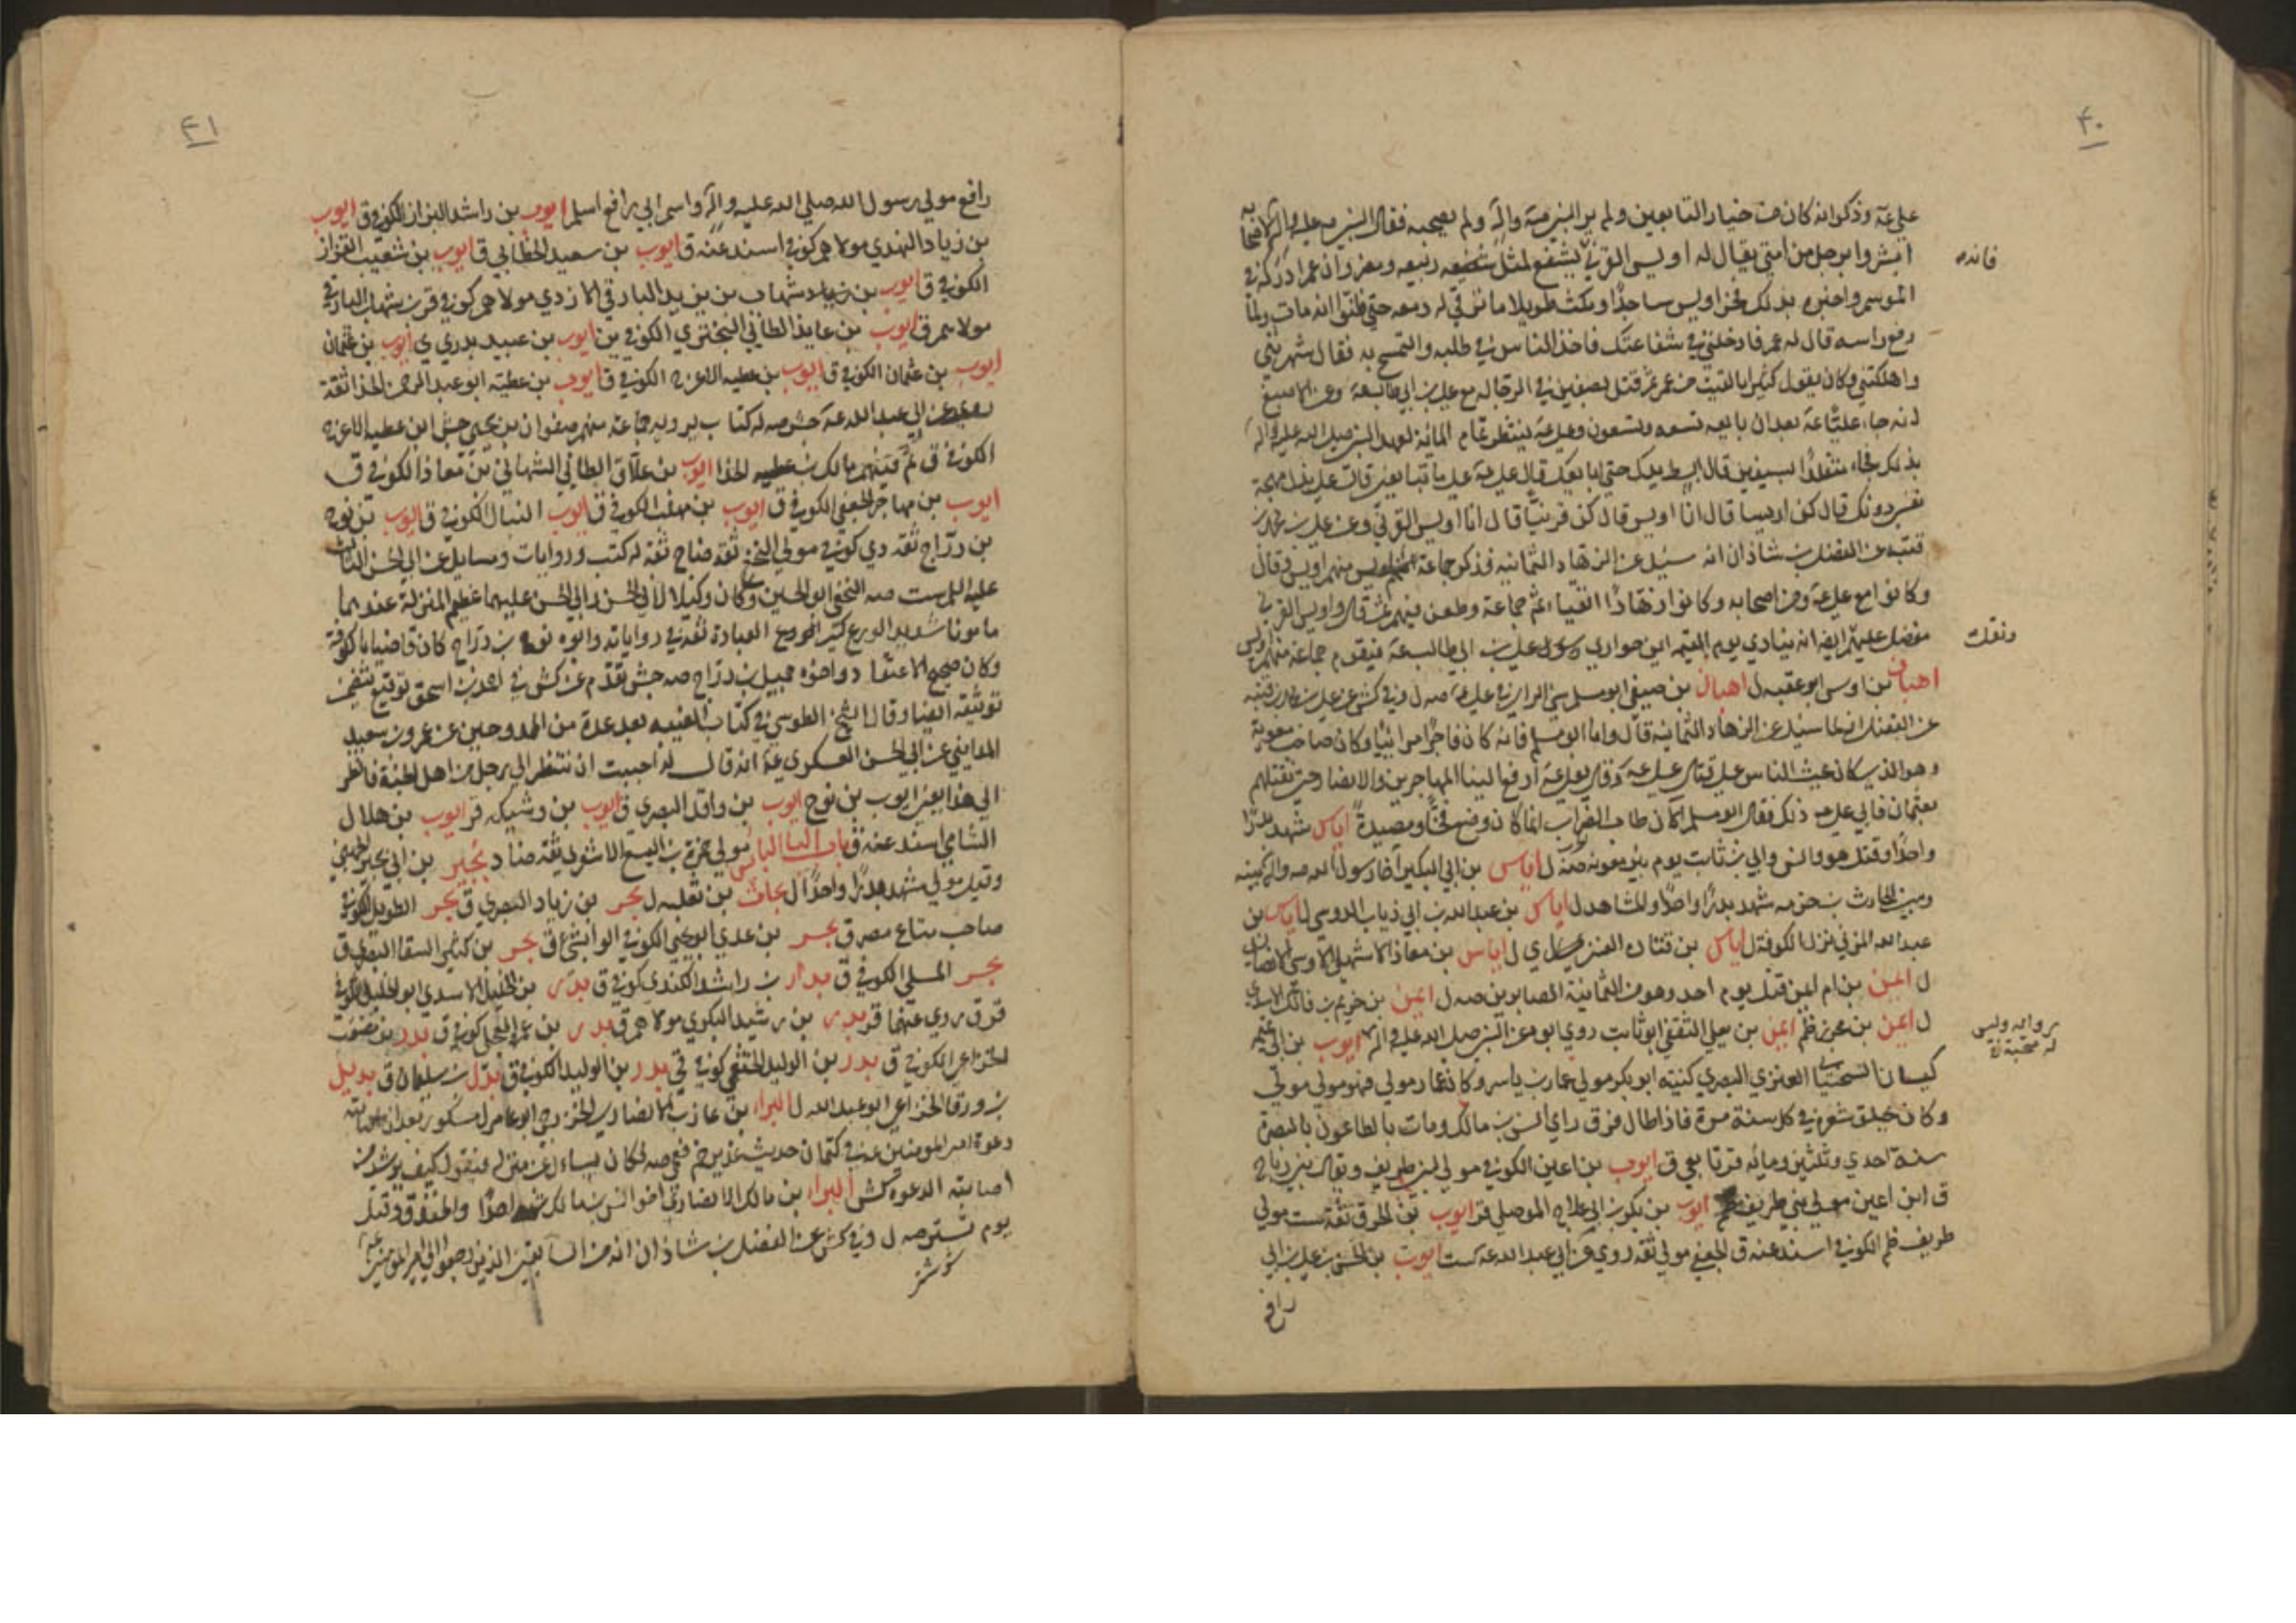 ٤٠
علي عة وذكروا انه كان من خيار التابعين ولم ير النبي صة واله ولم يصحبه فقال النبي صه عليه واله لاصحابه
ابشروا برجل من امتي يقال له اويس القرني يشفع لمثل ربيعه ومضر وان عمر ادركه في
الموسم واخبره بذلك فخر اويس ساجدا ومكث طويلا ما ترقي له دمعه حتي ظنوا انه مات ولما
رفع راسه قال له عمر فادخلني في شفاعتك فاخذ الناس في طلبه والتمسح به فقال شهرتني
واهلكتني وكان يقول كثيرا ما لقيت من عمر ثم قتل بصفين في الرجاله مع علي بن ابي طالب عة وعن الاصبغ
انه جاء عليا عة بعد ان بايعه تسعه وتسعون وعلي عة ينتظر تمام المائه لعهد النبي صلي الله عليه واله
بذلك فجاء متقلدا بسيفين قال ابسط يدك حتي ابايعك قال علي عة علي ما تبايعني قال علي بذل مهجة
نفسي دونك قال كن اويسا قال انا اويس قال كن قرنيا قال انا اويس القرني وعن علي بن محمد بن
قتيبه عن الفضل بن شاذان انه سئل عن الزهاد الثمانيه فذكر جماعة منهم اويس وقال
وكانوا مع علي عة ومن اصحابه وكانوا زهادا اتقياء ثم جماعة وطعن فيهم ثم قال واويس القرني
مفضل عليهم ايضا انه ينادي يوم القيمه اين حواري علي بن ابي طالب عة فيقوم جماعة منهم اويس
اهبان بن اوس ابو عقبه ل اهبان بن صيفي ابو مسلم علي عة صه ل وفي كش عن علي بن محمد بن قتيبه
عن الفضل انه لما سئل عن الزهاد الثمانيه قال واما ابو مسلم فانه كان فاجرا مرائيا وكان صاحب معوية
وهو الذي كان يحث الناس علي قتال علي عة وقال لعلي عة ادفع الينا المهاجرين والانصار حتي نقتلهم
بعثمان فابي علي عه ذلك فقال ابو مسلم الان طاب الضراب انما كان وضع فخا ومصيدة اياس شهد بدرا
واحدا وقتل هو وانس وابي بن ثابت يوم بئر معونه صه ل اياس بن ابي البكير اخا رسول الله صه واله بينه
وبين الحارث بن خزمه شهد بدرا واحدا والمشاهد ل اياس بن عبد الله بن ابي ذباب الدوسي ل اياس بن
عبد الله المزني نزل الكوفة ل اياس بن قتاده العنزي ل اياس بن معاذ الاشهلي الاوسي الانصاري
ل ايمن بن ام ايمن قتل يوم احد وهو من الثمانية الصابرين صه ل ايمن بن خريم بن فاتك الاسدي
ل ايمن بن محرز ظم ايمن بن يعلي الثقفي ابو ثابت روي ابوه عن النبي صلي الله عليه واله ايوب بن ابي تميمه
كيسان السختياني العنزي البصري كنيته ابو بكر مولي عمار بن ياسر وكان عمار مولي فهو مولي مولي
وكان يحلق شعره في كل سنة مرة فاذا طال فرق راي انس بن مالك ومات بالطاعون بالبصرة
سنة احدي وثلثين ومائه قر تابعي ق ايوب بن اعين الكوفي مولي لبني طريف ويقال بني رباح
ق ابن اعين مولي بني طريف ظم ايوب بن بكر بن ابي علاج الموصلي قر ايوب بن الحر ق ثقة ست مولي
طريف ظم الكوفي اسند عنه ق الجعفي مولي ثقه روي عن ابي عبد الله عه كست ايوب بن الحسن بن علي بن ابي
رافع
فانه
ونقلت
رواية وليس
له صحبة
٤١
رافع مولي رسول الله صلي الله عليه واله واسم ابي رافع اسلم ايوب بن راشد البزاز الكوفي ق ايوب
بن زياد النهدي مولاهم كوفي اسند عنه ق ايوب بن سعيد الخطابي ق ايوب بن شعيب القزاز
الكوفي ق ايوب بن شهاب بن زيد البارقي الازدي مولاهم كوفي قر بن شهاب البارقي
مولاهم ق ايوب بن عايذ الطائي البختري الكوفي ين ايوب بن عبيد بدري ي ايوب بن عثمان
ايوب بن عثمان الكوفي ق ايوب بن عطيه الاعرج الكوفي ق ايوب بن عطيه ابو عبد الرحمن الحذا ثقة
روي عن ابي عبد الله عه جش صه له كتاب يرويه جماعة منهم صفوان بن يحيي جش ابن عطيه الاعرج
الكوفي ق ثم فيهم مالك بن عطيه الحذا ايوب بن علاق الطائي النبهاني بن معاذ الكوفي ق
ايوب بن مهاجر الجعفي الكوفي ق ايوب بن مهلب الكوفي ق ايوب النبال الكوفي ق ايوب بن نوح
بن دراج ثقه دي كوفي مولي النخع ثقة صالح ثقة له كتب وروايات ومسايل عن ابي الحسن الثالث
عليه السلم ست صه النخعي ابو الحسين وكان وكيلا لابي الحسن وابي الحسن عليهما عظيم المنزلة عندهما
مامونا شديد الورع كثير العبادة ثقة في رواياته وابوه نوح بن دراج كان قاضيا بالكوفة
وكان صحيح الاعتقاد واخوه جميل بن دراج صه جش تقدم عن كش في احمد بن اسحق توقيع يتضمن
توثيقه ايضا وقال الشيخ الطوسي في كتاب الغيبه بعد عدة من الممدوحين عن عمرو بن سعيد
المدايني عن ابي الحسن العسكري عة انه قال له احببت ان تنظر الي رجل من اهل الجنة فانظر
الي هذا يعني ايوب بن نوح ايوب بن واقد البصري ق ايوب بن وشيكه قر ايوب بن هلال
الشامي اسند عنه ق باب البا البائس مولي حمزة بن اليسع الاشعري ثقه ضا د بجير بن ابي بجير الجهني
وقيل مولي شهد بدرا واحدا ل بحاث بن ثعلبه ل بحر بن زياد البصري ق بحر الطويل الكوفي
صاحب متاع مصر ق بحر بن عدي ابو يحيي الكوفي الوابشي ق بحر بن كثير السقا البصري ق
بحر المسلي الكوفي ق بدار بن راشد الكندي كوفي ق بدر بن الخليل الاسدي ابو الخليل الكوفي
قر ق روي عنهما قر بدر بن رشيد البكري مولاهم ق بدر بن عمر العجلي كوفي ق بدر بن مصعب
الخزاعي الكوفي ق بدر بن الوليد الخثعمي كوفي قي بدر بن الوليد الكوفي ق بدل بن سليمان ق بديل
بن ورقا الخزاعي ابو عبد الله ل البراء بن عازب الانصاري الخزرجي ابو عامر ل مشكور بعد ان اصابته
دعوة امير المومنين عه في كتمان حديث غدير خم فعمي صه فكان يسال عن منزله فيقول كيف يرشد من
اصابته الدعوة كش البراء بن مالك الانصاري اخو انس بن مالك شهد احدا والخندق وقتل
يوم تستر صه ل وفي كش عن الفضل بن شاذان انه من السابقين الذين رجعوا الي امير المومنين عة